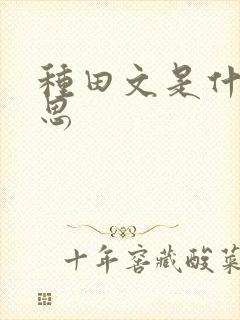 種田文是什
思
十年窖藏酸菜